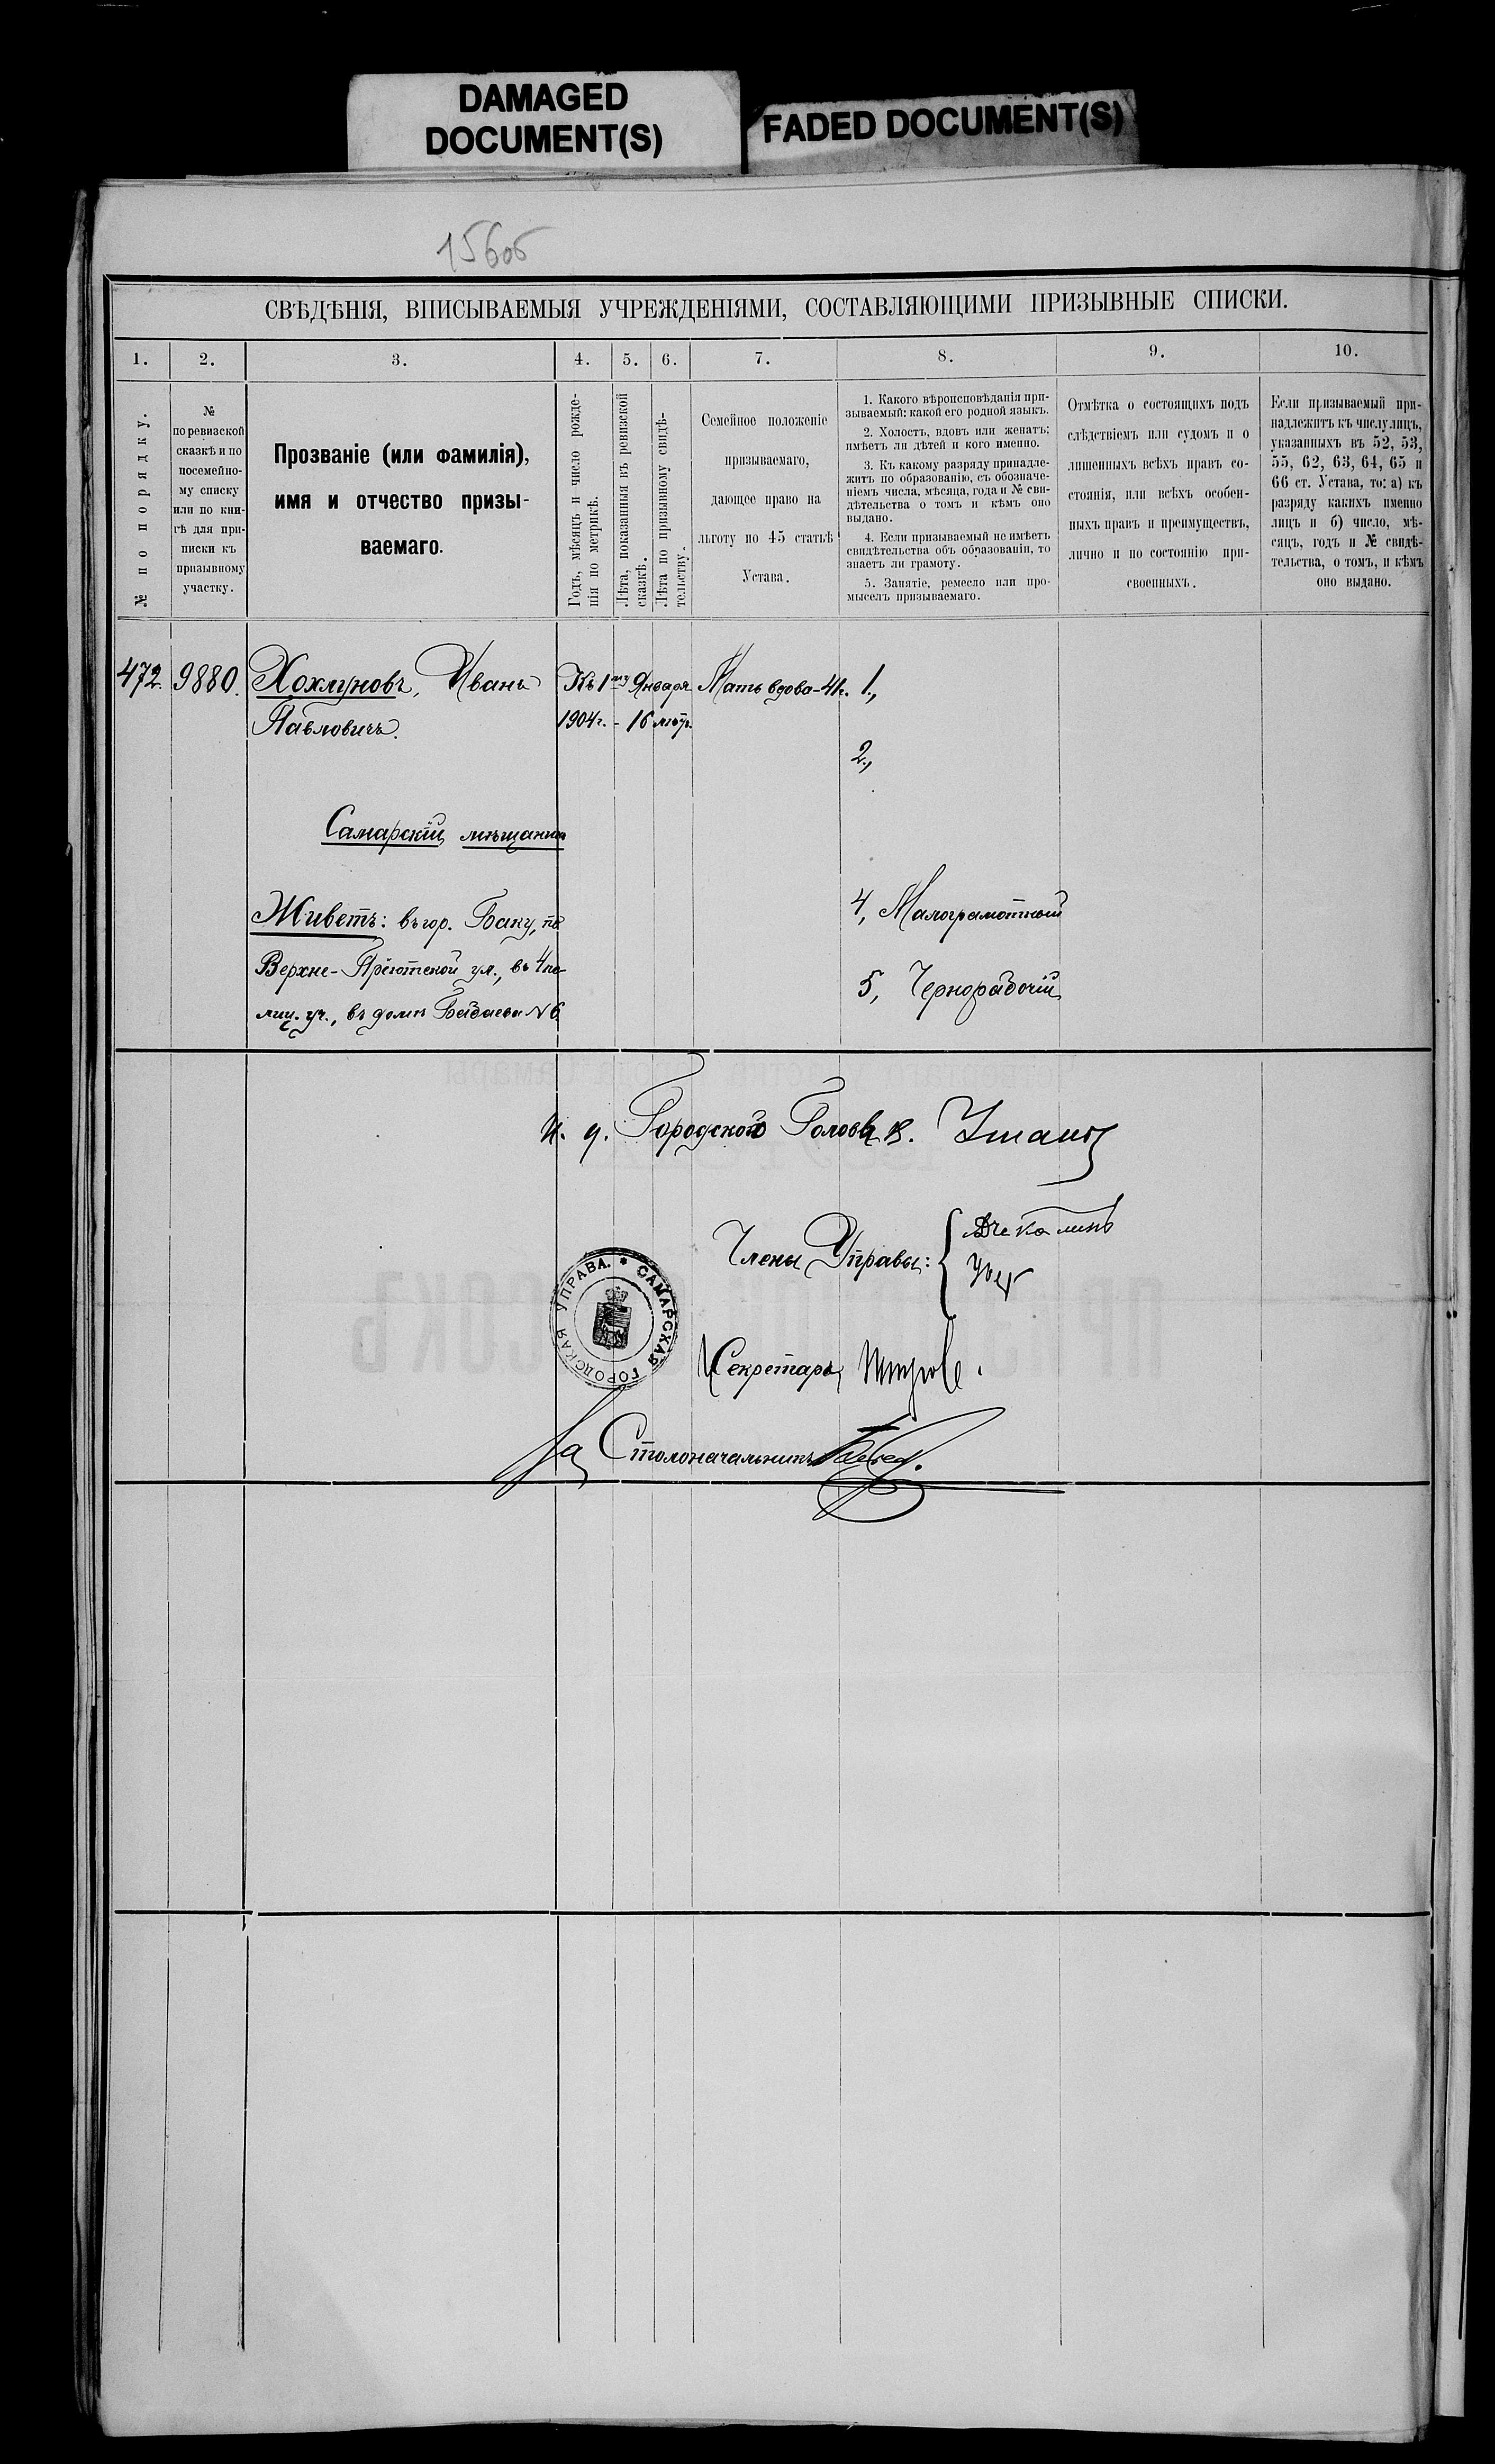 DAMAGED
DOCUMENT(S)
FADED DOCUMENT(S)
156об
СВѢДѢНІЯ, ВПИСЫВАЕМЫЯ УЧРЕЖДЕНІЯМИ, СОСТАВЛЯЮЩИМИ ПРИЗЫВНЫЕ СПИСКИ.
1. 2. 3. 4. 5. 6. 7. 8. 9. 10.
№ по порядку.
№
по ревизской
сказкѣ и по
посемейно-
му списку
или по кни-
гѣ для при-
писки къ
призывному
участку.
Прозваніе (или фамилія),
имя и отчество призы-
ваемаго.
Годъ, мѣсяцъ и число рожде-
нія по метрикѣ.
Лѣта, показанныя въ ревизской
сказкѣ.
Лѣта по призывному свидѣ-
тельству.
Семейное положеніе
призываемаго,
дающее право на
льготу по 45 статьѣ
Устава.
1. Какого вѣроисповѣданія при-
зываемый: какой его родной языкъ.
2. Холостъ, вдовъ или женатъ;
имѣетъ ли дѣтей и кого именно.
3. Къ какому разряду принадле-
житъ по образованію, съ обозначе-
ніемъ числа, мѣсяца, года и № сви-
дѣтельства о томъ и кѣмъ оно
выдано.
4. Если призываемый не имѣетъ
свидѣтельства объ образованіи, то
знаетъ ли грамоту.
5. Занятіе, ремесло или про-
мыселъ призываемаго.
Отмѣтка о состоящихъ подъ
слѣдствіемъ или судомъ и о
лишенныхъ всѣхъ правъ со-
стоянія, или всѣхъ особен-
ныхъ правъ и преимуществъ,
лично и по состоянію при-
своенныхъ.
Если призываемый при-
надлежитъ къ числу лицъ,
указанныхъ въ 52, 53,
55, 62, 63, 64, 65 и
66 ст. Устава, то: а) къ
разряду какихъ именно
лицъ и б) число, мѣ-
сяцъ, годъ и № свидѣ-
тельства, о томъ, и кѣмъ
оно выдано.
472. 9880. Хохлуновъ, Иванъ Къ 1му Января Мать вдова-41г. 1.,
Павловичъ. 1904г. - 16 лѣтъ.
2.,
Самарскій мѣщанинъ
Живетъ: въ гор. Баку, по 4, Малограмотный
Верхне-Пріютской ул., въ 4 по-
лиц. уч., въ домѣ № 6 5, Чернорабочій
И. д. Городского Головы В.
Члены Управы:
САМАРСКАЯ ГОРОДСКАЯ УПРАВА.
Секретарь
За Столоначальникъ